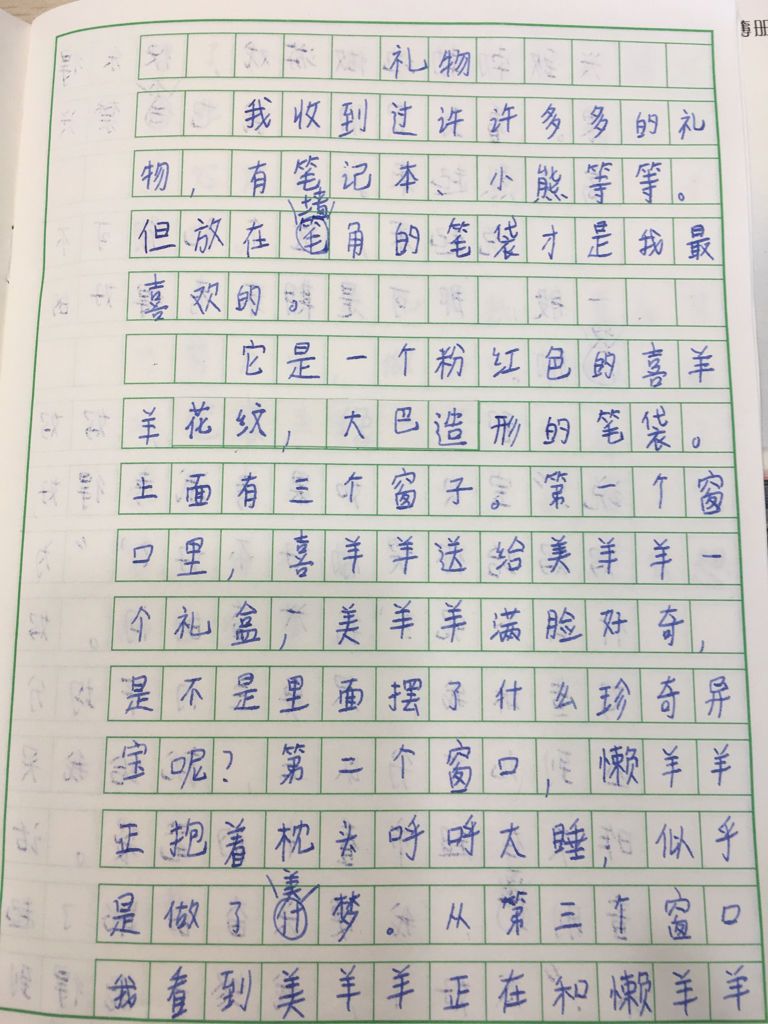 礼物
我收到过许许多多的礼
物，有笔记本、小熊等等。
但放在墙角的笔袋才是我最
喜欢的。
它是一个粉红色的喜羊
羊花纹，大巴造形的笔袋。
上面有三个窗子。第一个窗
口里，喜羊洋送给美羊羊一
个礼盒，美羊羊满脸好奇，
是不是里面摆了什么珍奇异
宝呢？第二个窗口，懒羊羊
正抱着枕头呼呼大睡，似乎
是做了美梦。从第三个窗口
我看到美羊羊正在和懒羊羊